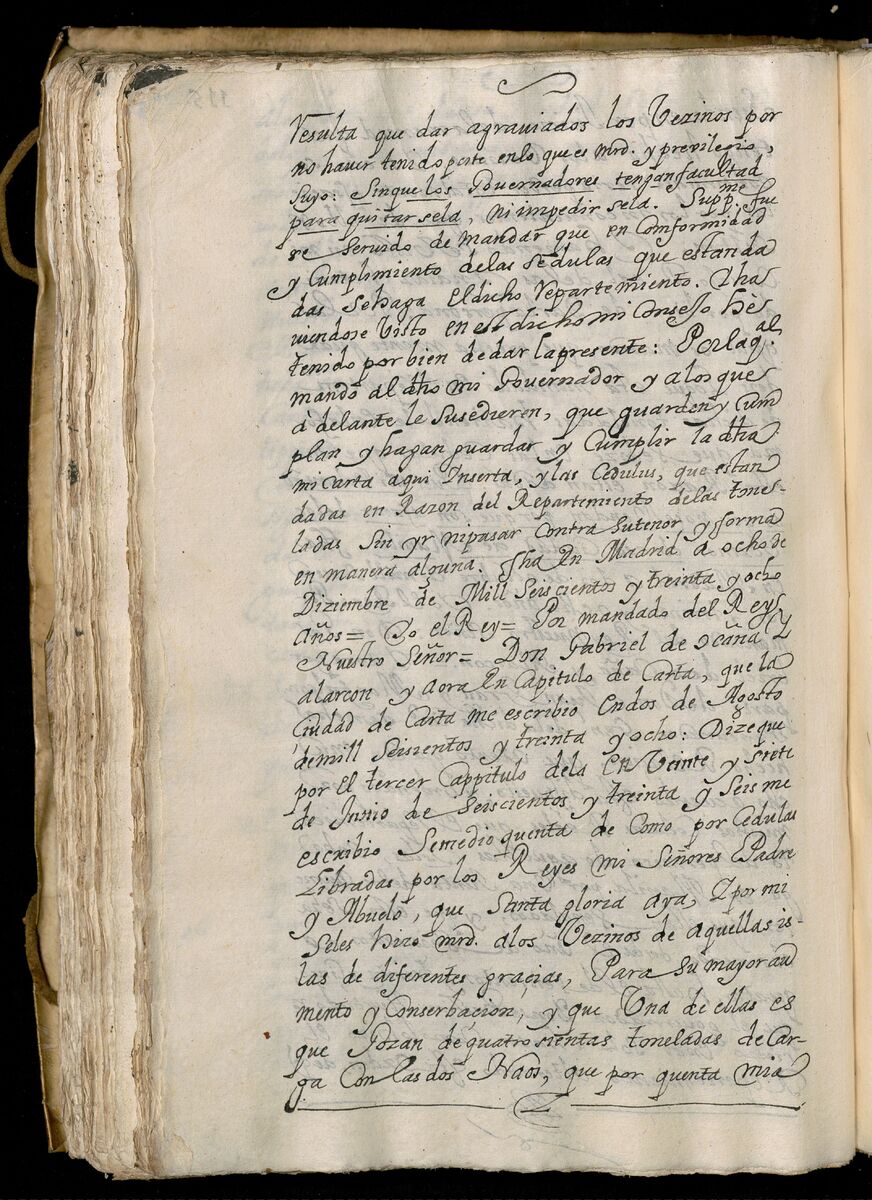 Resulta que dar agraviados los Vezinos por
no haver tenido parte en lo que es mrd. y previlegio,
Suyo: Sinque los Governadores tengan facultad
para quitarsela, ni impedirsela. Suppme. fue
se Servido de mandar que en Comformidad
y Cumplimiento delas Sedulas que estan da
das Sehaga El dicho Repartemiento. Tha
viendose Visto en el dicho mi Consejo Hè
tenido por bien de dar la presente: Por laql.
mando al dho mi Governador y alos que
à delante le Susedieren, que guarden y Cum
plan y hagan guardar y Cumplir la dha
mi Carta aqui Inserta, y las Cedulas, que estan
dadas en Razon del Repartemiento delas tone-
ladas Sin yr ni pasar Contra Su tenor y forma
en manera alguna. fha En Madrid a ocho de
Diziembre de Mill Seiscientos y treinta y ocho
años= Yo el Rey= Por mandado del Rey
Nuestro Señor= Don Gabriel de ocaña Y
alarcon y aora En Capitulo de Carta, que la
Ciudad de Carta me escribio En dos de Agosto
de mill Seisientos y treinta y ocho: Dize que
por El tercer Cappitulo dela En Veinte y Siete
de Junio de Seiscientos y treinta y Seis me
escribio Semedio quenta de Como por Cedulas
Libradas por los Reyes mi Señores Padre
y Abuelo, que Santa gloria aya, Y por mi
Seles hizo mrd. alos Vezinos de aquellas is-
las de diferentes gracias, Para Su mayor au
mento y Conserbacion, y que Una de ellas es
que Gozan de quatrosientas toneladas de Car-
ga Con las dos Naos, que por quenta mia